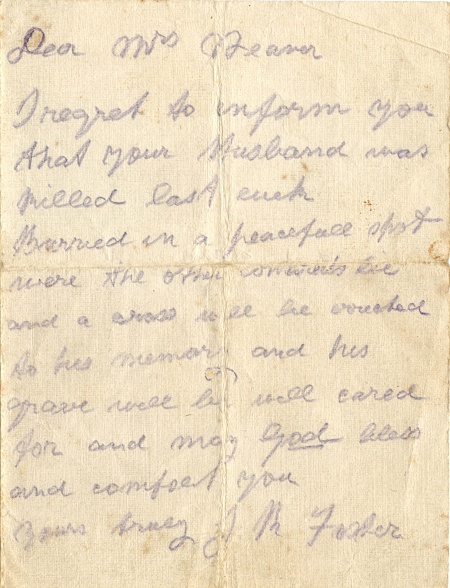 Dear Mrs Weaver
I regret to inform you
that your Husband was
killed last
Burried in a peacefull spot
were the other lie
and a cross will be
to his memory and his
grave will be well cared
for and may God bless
and comfort you
Yours truly J R Foster